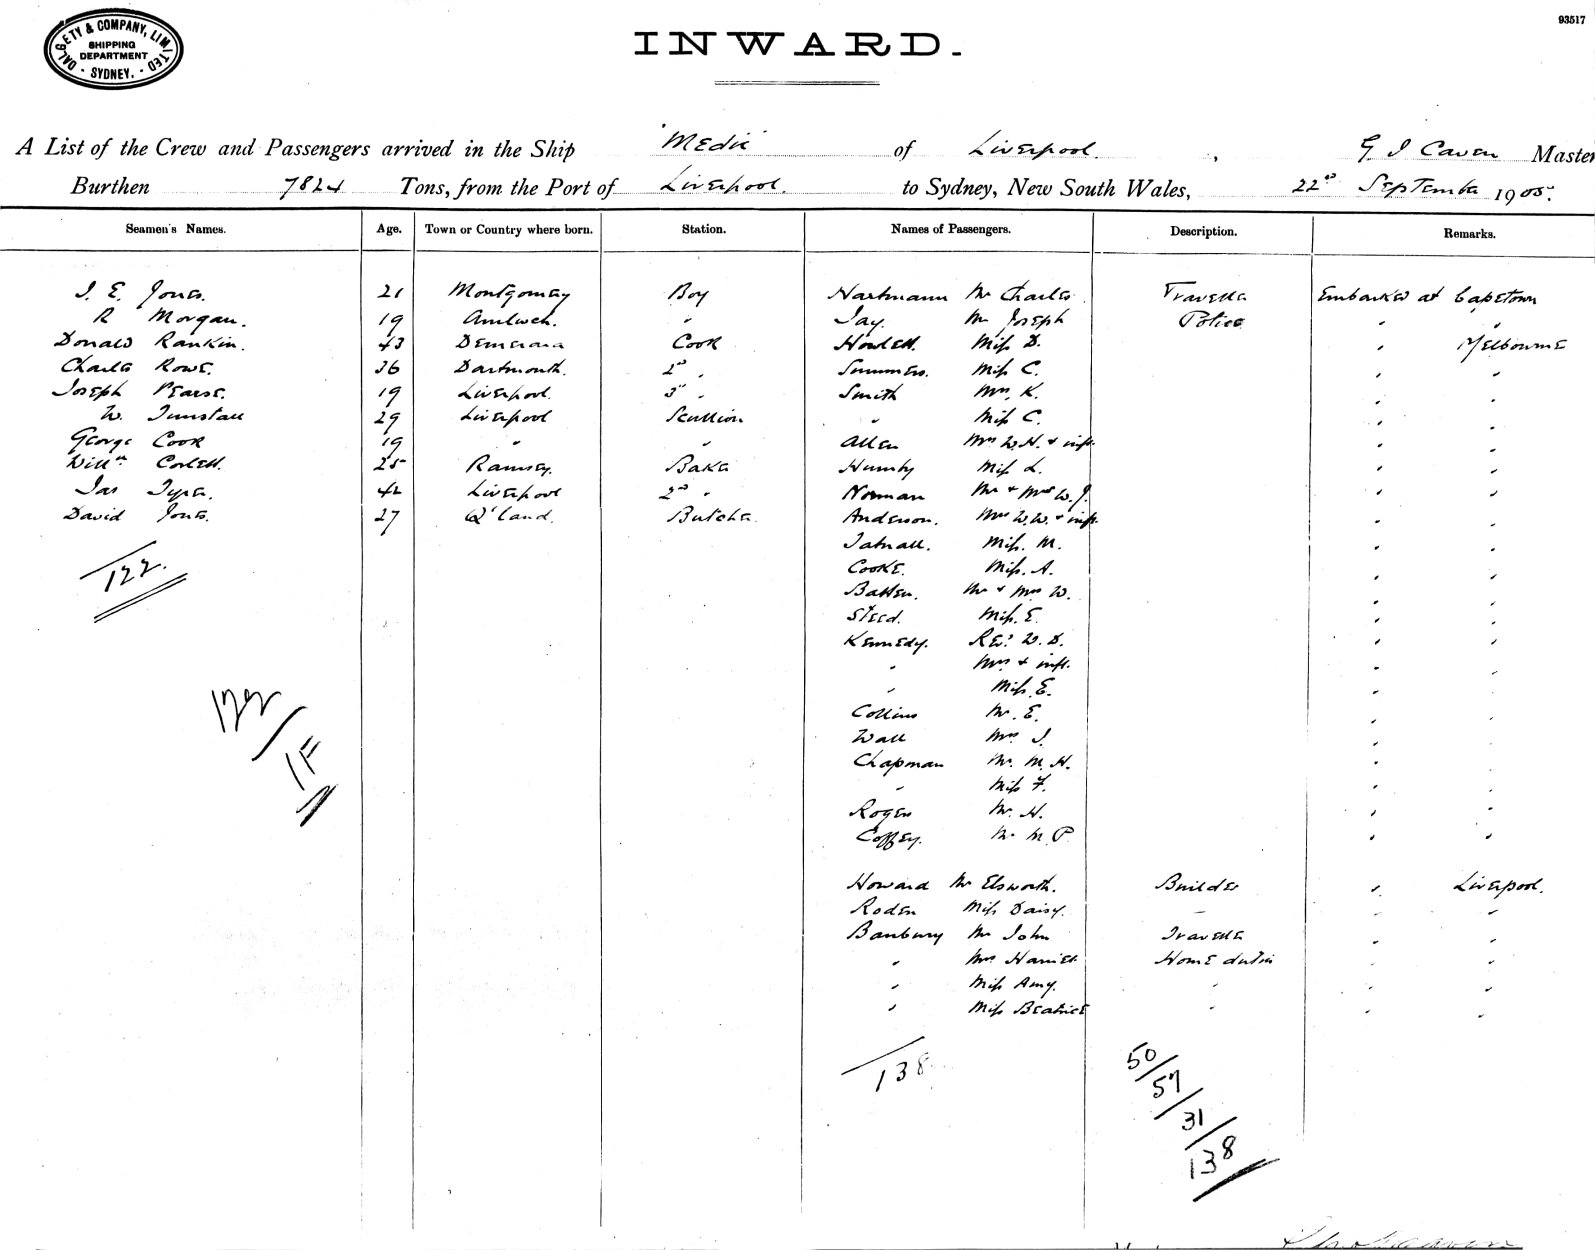 DALGETY & COMPANY, LIMITED
SHIPPING
DEPARTMENT
SYDNEY.
93517
INWARD.
A List of the Crew and Passengers arrived in the Ship "Medic" of Liverpool, G J Caven Master
Burthen 7824 Tons, from the Port of Liverpool. to Sydney, New South Wales, 22nd September 1905.
Seamen's Names. Age. Town or Country where born. Station. Names of Passengers. Description. Remarks.
J. E. Jones. 21 Montgomery Boy Hartmann Mr Charles Traveller Embarked at Capetown
R Morgan. 19 Amlwch. " Jay. Mr Joseph Police " "
Donald Rankin. 43 Demerara Cook Howlett. Miss D. " Melbourne
Charles Rowe. 36 Dartmouth. 2nd " Summers. Miss C. " "
Joseph Pearse. 19 Liverpool. 3rd " Smith Mrs. K. " "
W. Tunstall 29 Liverpool Scullion " Miss C. " "
George Cook 19 " " Allen Mrs W.H. & inft. " "
Willm Corlett. 25 Ramsey. Baker Humby Miss L. " "
Jas Tyrer. 42 Liverpool 2nd " Norman Mr & Mrs W.J. " "
David Jones. 27 Q'land. Butcher. Anderson. Mrs W.W. & inft. " "
Tatnall. Miss. M. " "
122.
Cooke. Miss. A. " "
Batten. Mr & Mrs W. " "
Steed. Miss. E. " "
Kennedy. Revd. W. D. " "
" Mrs & inft. " "
" Miss. E. " "
122
Collins Mr. E. " "
Wall Mrs J. " "
1F
Chapman Mr. M. H. " "
" Miss F. " "
Rogers Mr. H. " "
Coffey. Mr M. P. " "
Howard Mr Elsworth. Builder " Liverpool.
Roden Miss Daisy. — " "
Banbury Mr John Traveller " "
" Mrs Harriet Home duties " "
" Miss Amy. " " "
" Miss Beatrice " " "
138
50
57
31
138